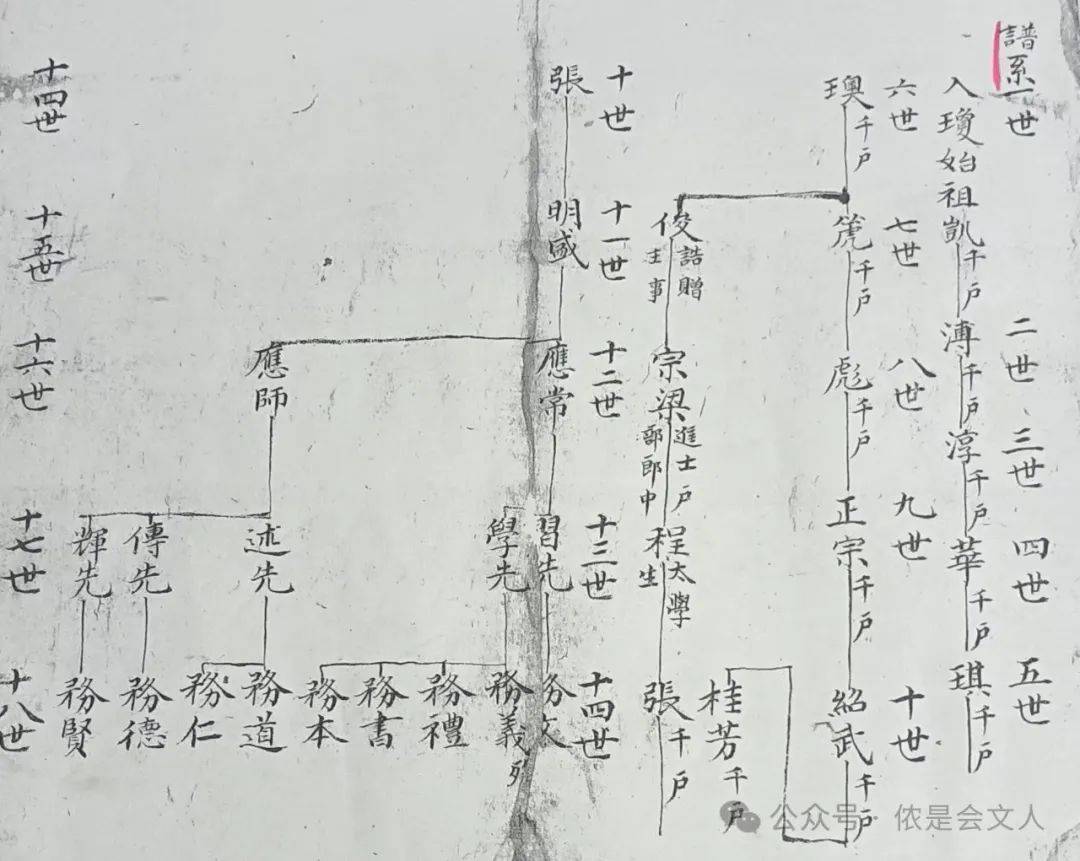 譜系一世
入瓊始祖凱千戶
二世
溥千戶
三世
淳千戶
四世
華千戶
五世
琪千戶
六世
璵千戶
七世
箎千戶
俊誥贈主事
八世
彪千戶
宗梁進士戶部郎中
九世
正宗千戶
程太學生
十世
紹武千戶
桂芳千戶
張千戶
十世
張
十一世
明盛
十二世
應常
應師
十三世
習先
學先
述先
傳先
輝先
十四世
務文
務義
務禮
務書
務本
務道
務仁
務德
務賢
十四世
十五世
十六世
十七世
十八世
公众号 侬是会文人